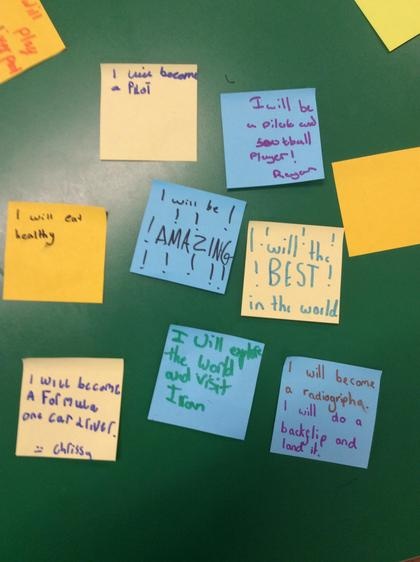 will
play
I will become
a Pilot
I will be
a pilote and
football
player!
Rayan
I will be !
! ! !
! AMAZING
! ! ! ! !
I will eat
healthy
! ! ! !
I will the
! BEST !
in the world
I will become
A Formula
one car driver.
= Chrissy
I will explore
the world
and visit
Iran
I will become
a radiographa.
I will do a
backflip and
land it.